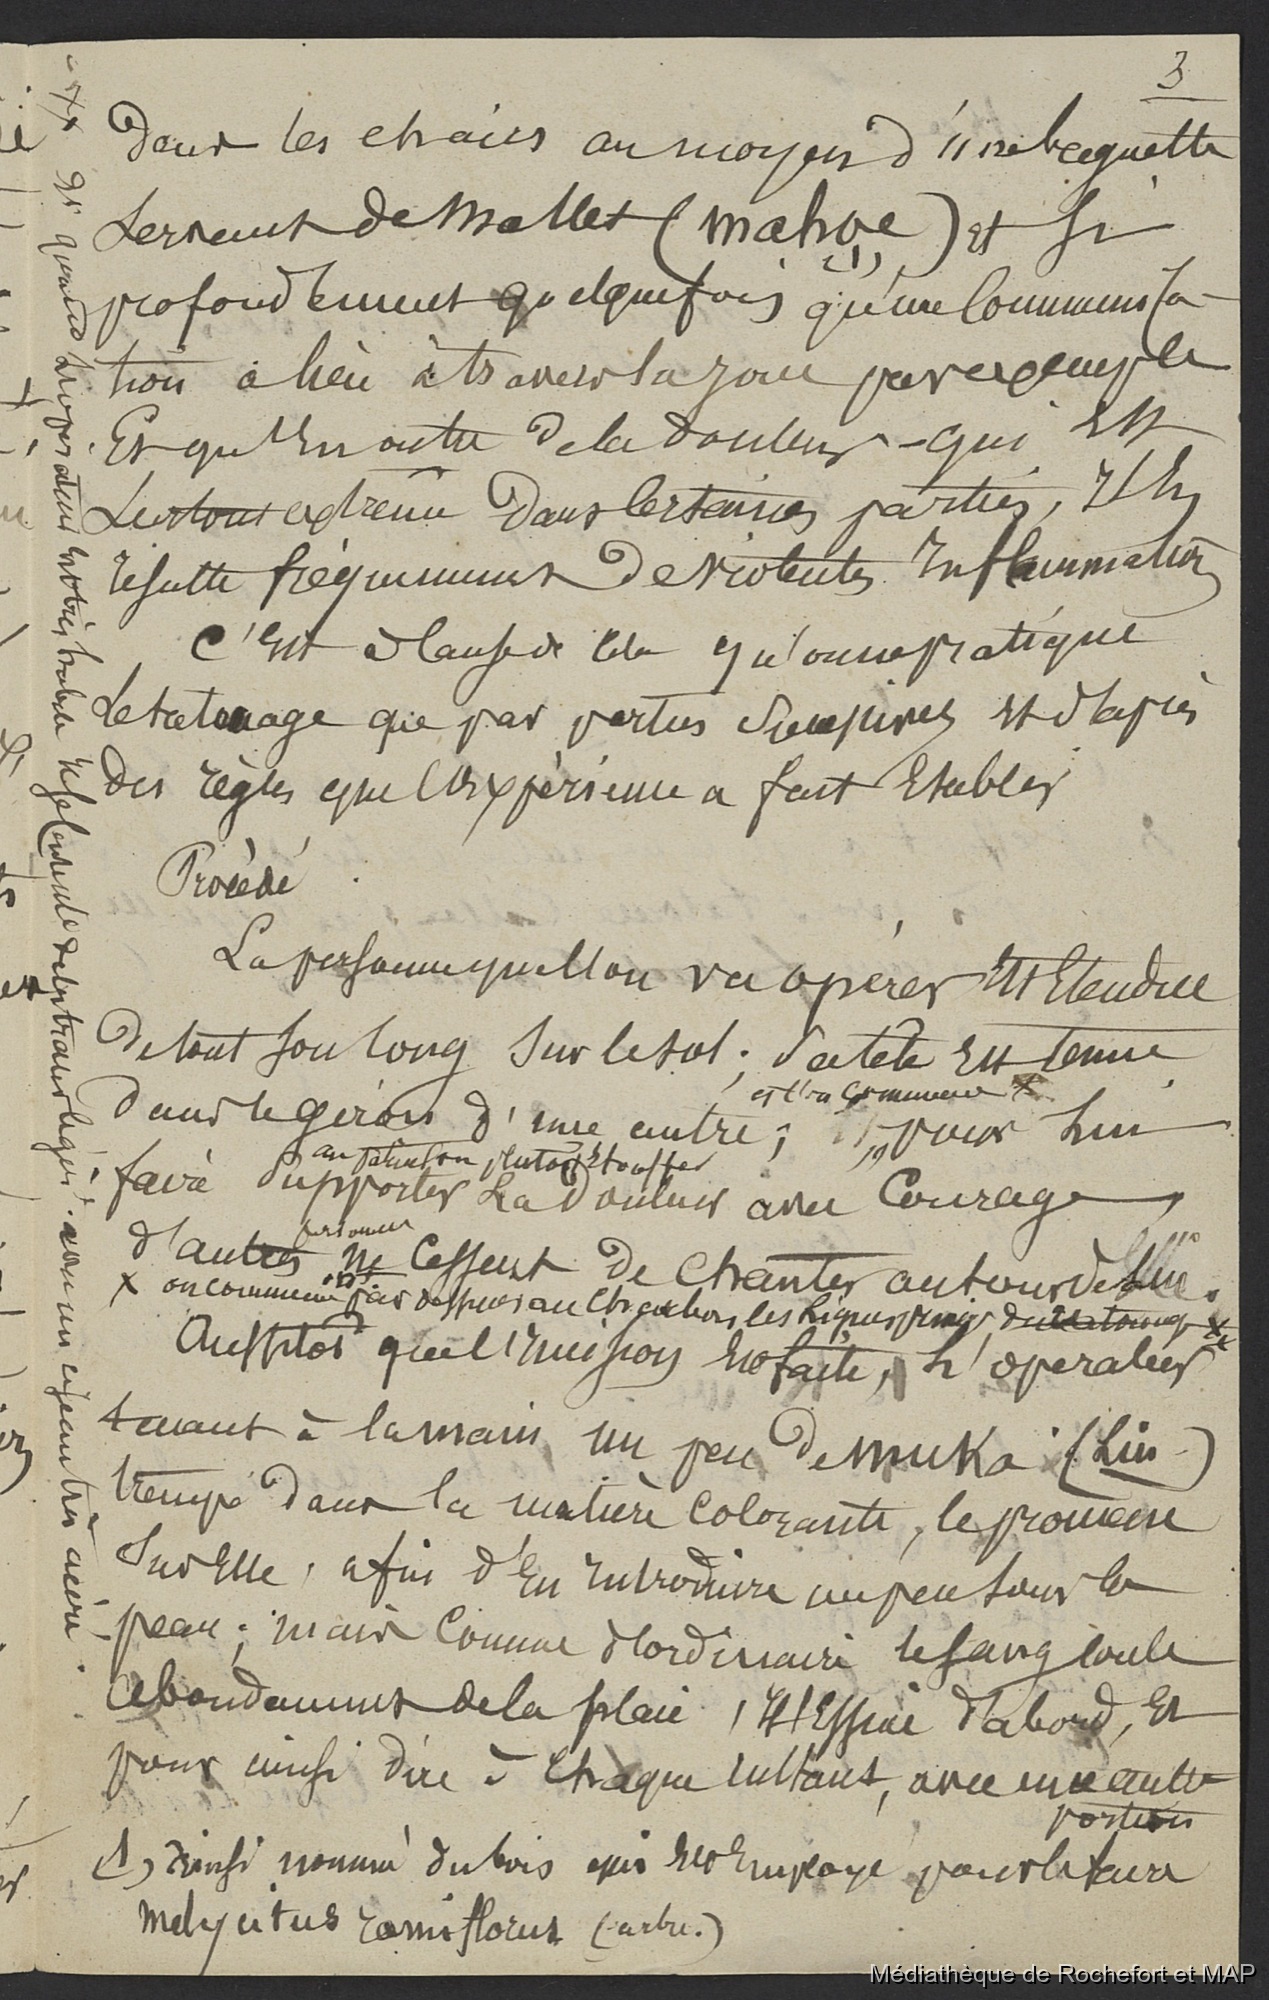 3
Dans les chairs au moyen d'une baguette
servant de maillet (mahoe) et si
(1)
profondément quelquefois qu'une communica-
tion a lieu à travers la joue par exemple
Et qu'en outre de la douleur - qui est
surtout extrême dans certaines parties, il en
résulte fréquemment de violentes inflammations
C'est à cause de cela qu'on ne pratique
le tatouage que par parties et d'après
des règles que l'expérience a fait établir
Procédé
La personne que l'on va opérer est étendue
de tout son long sur le sol ; sa tête est tenue
et l'on commence x
dans le giron d'une autre ; pour lui
ou plutôt étouffer
faire supporter la douleur avec courage,
personnes
d'autres ne cessent de chanter autour de lui.
x on commence par dessiner au charbon les lignes du tatouage xx
Aussitôt que l'incision est faite, l'opérateur
tenant à la main un peu de muka (Lin)
trempé dans la matière colorante, le promène
sur elle, afin d'en introduire un peu sous la
peau ; mais comme d'ordinaire le sang coule
abondamment de la plaie, il l'essuie d'abord, et
pour ainsi dire à chaque instant, avec une autre
portion
(1) ainsi nommé du bois qui est employé pour le faire
Melycitus ramiflorus (arbre.)
xx et quand l'opérateur n'est pas très habile il se contente de les tracer légèrement en creux très aéré.
Médiathèque de Rochefort et MAP